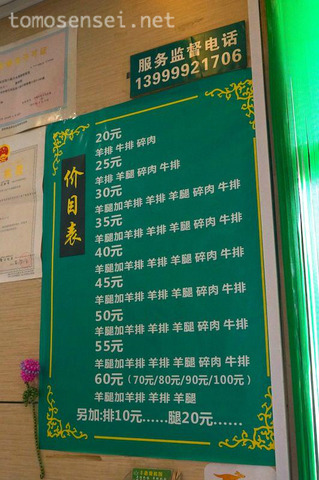 tomosensei.net
服务监督电话
13999921706
价目表
20元
羊排 牛排 碎肉
25元
羊排 羊腿 碎肉 牛排
30元
羊腿加羊排 羊排 羊腿 碎肉 牛排
35元
羊腿加羊排 羊排 羊腿 碎肉 牛排
40元
羊腿加羊排 羊排 羊腿 碎肉 牛排
45元
羊腿加羊排 羊排 羊腿 碎肉 牛排
50元
羊腿加羊排 羊排 羊腿 碎肉 牛排
55元
羊腿加羊排 羊排 羊腿 碎肉 牛排
60元（70元/80元/90元/100元）
羊腿加羊排 羊排 羊腿
另加:排10元……腿20元……